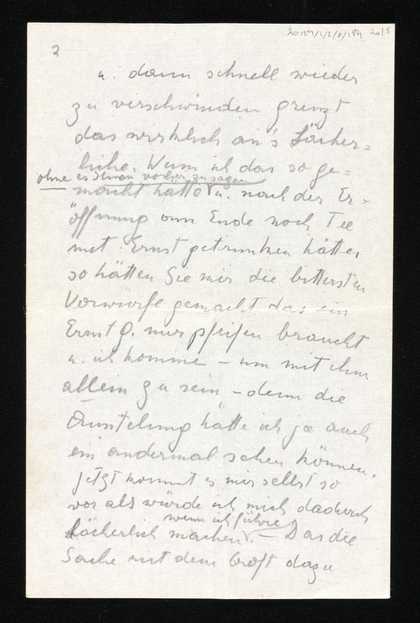 2
u. dann schnell wieder
zu verschwinden grenzt
das wirklich an's Lächer=
liche. Wenn ich das so ge=
ohne es Ihnen vorher zu sagen
macht hätte u. nach der Er=
öffnung am Ende noch Tee
mit Ernst getrunken hätte,
so hätten Sie mir die bittersten
Vorwürfe gemacht dass ein
Ernst G. nur pfeifen braucht
u. ich komme – um mit ihm
allein zu sein – denn die
Ausstellung hätte ich ja auch
ein andermal sehen können.
Jetzt kommt es mir selbst so
vor als würde ich mich dadurch
wenn ich führe
lächerlich machen. – Das die
Sache mit dem Groft dazu